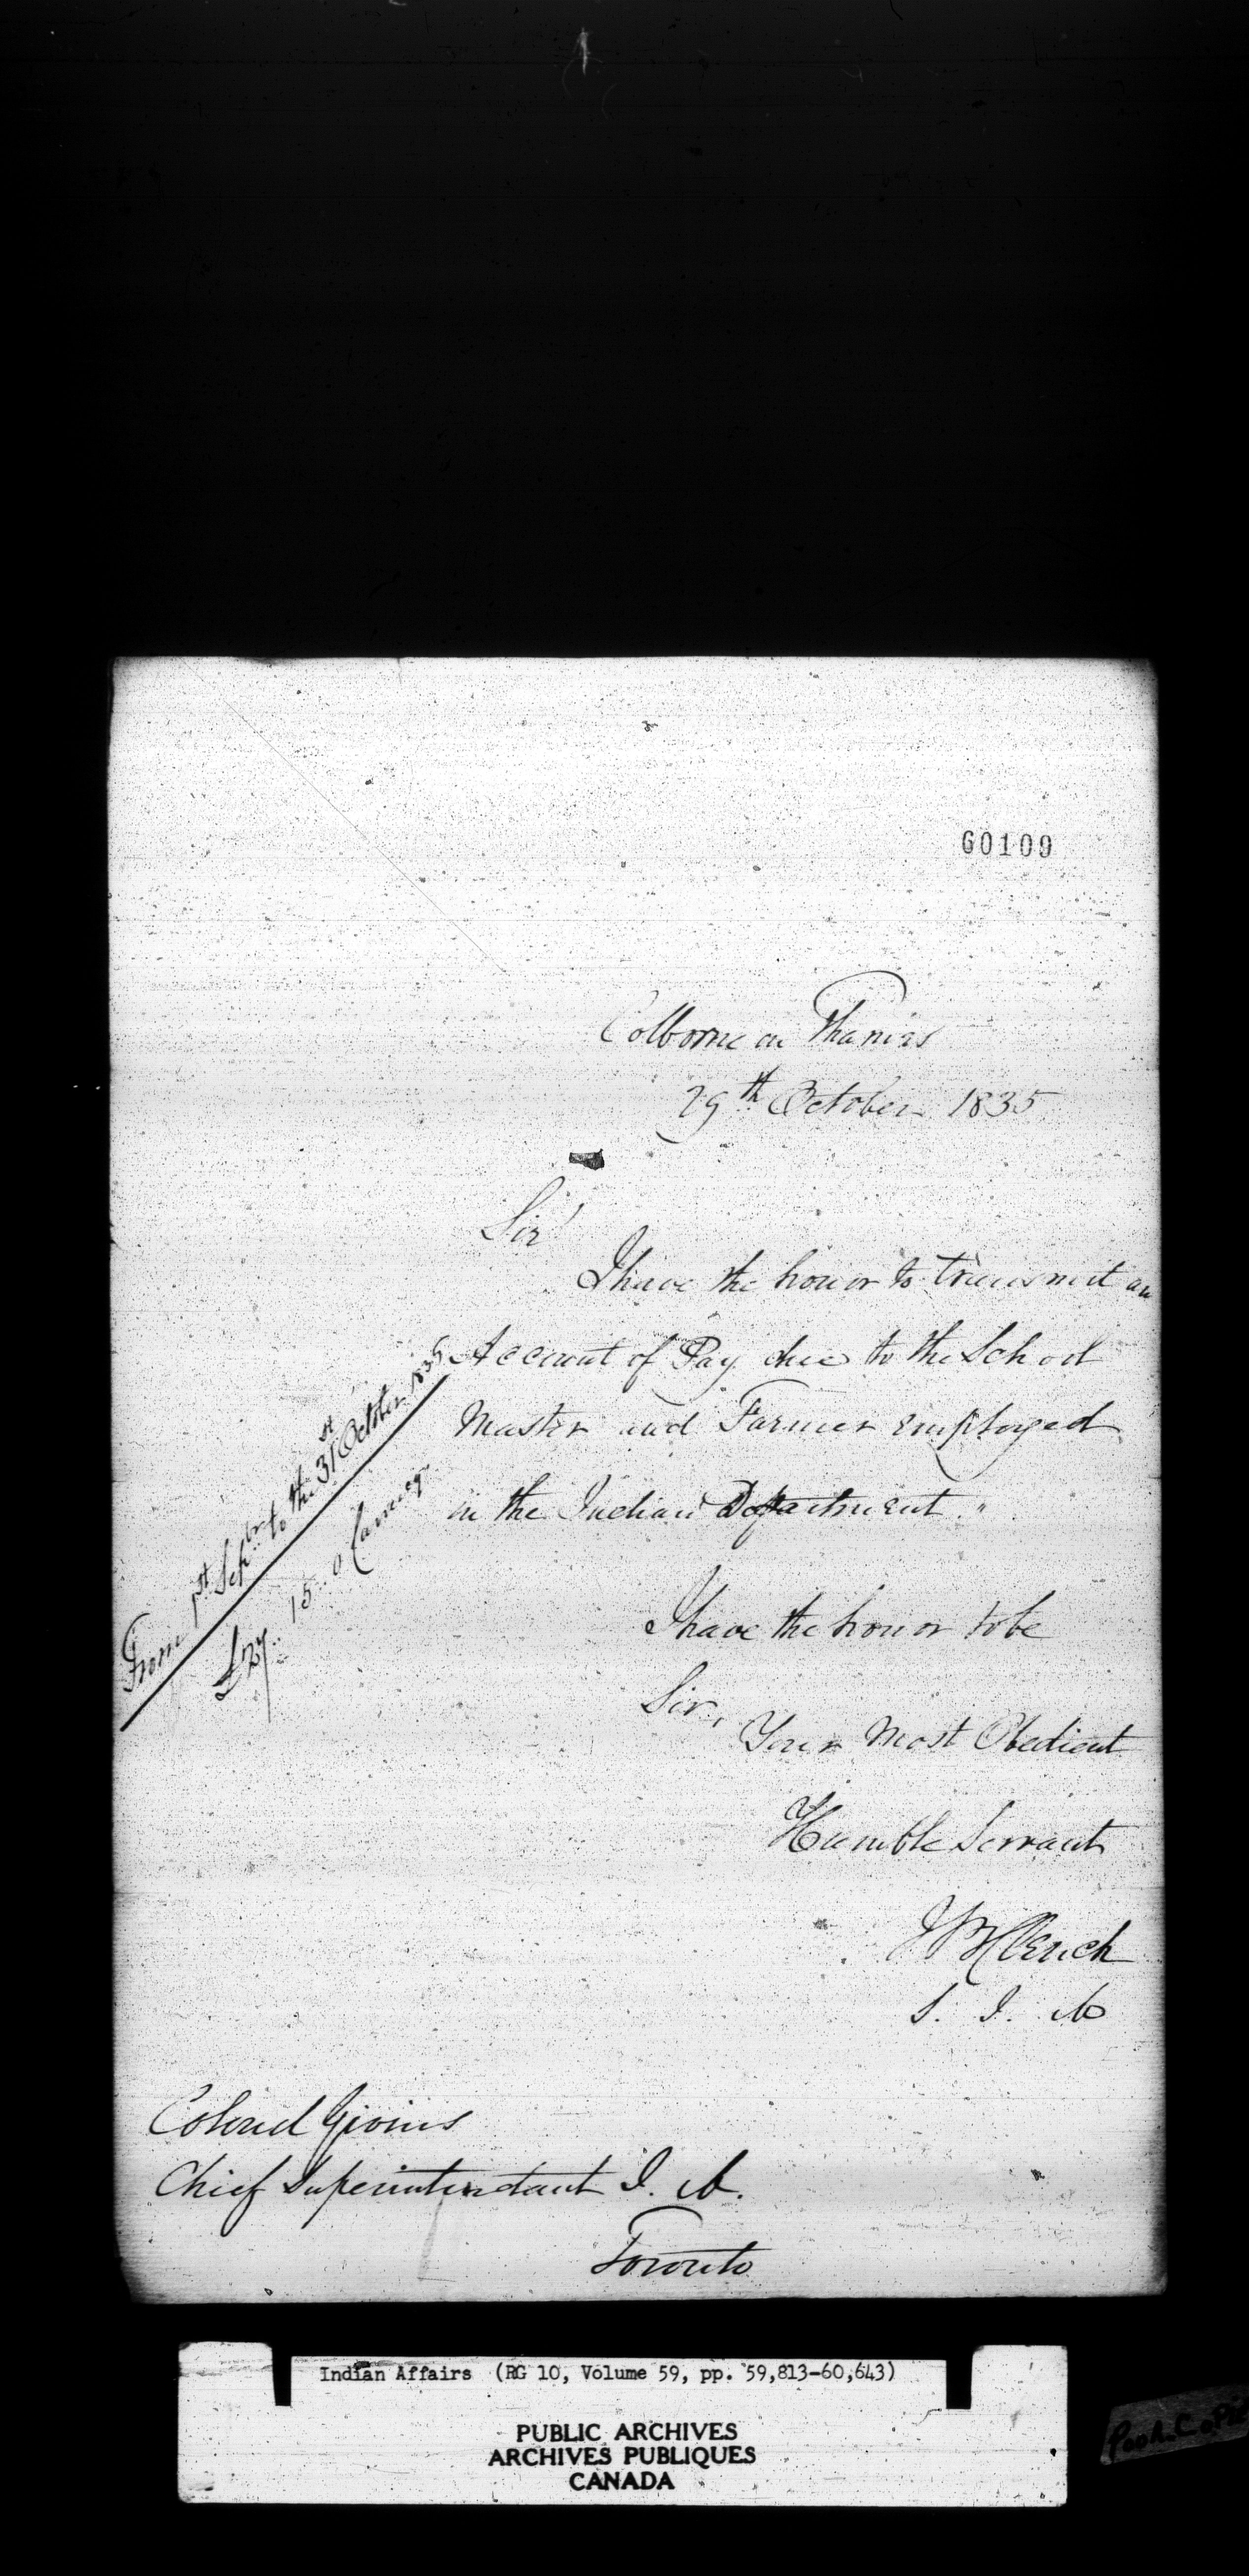 60109
Colborne on Thames
29th October 1835
Sir
I have the honor to transmit an
Account of Pay due to the School
Master and Farmer employed
in the Indian Department."
From 1st Sepbr to the 31st October 1835
15..0 Currency
I have the honor to be
Sir,
Your Most Obedient
Humble Servant
J B Clench
S. I. A
Colonel Givins
Chief Superintendant I. A.
Toronto
Indian Affairs (RG 10, Volume 59, pp. 59,813-60,643)
PUBLIC ARCHIVES
ARCHIVES PUBLIQUES
CANADA